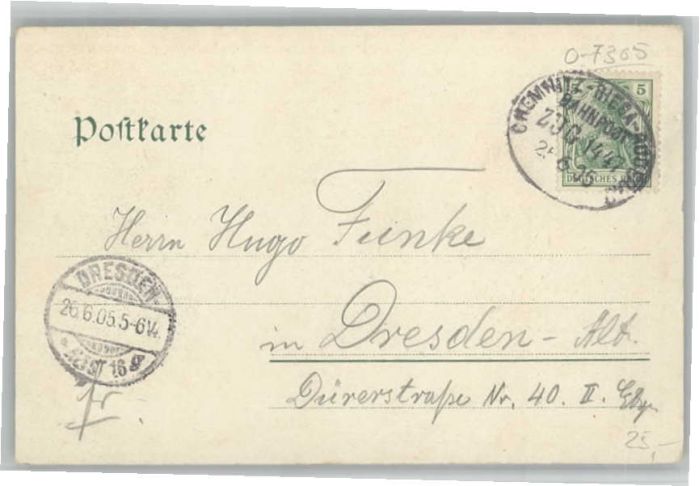 0-7305
5
CHEMNITZ-RIESA-
BAHNPOST
ZUG 144
DEUTSCHES REICH
Postkarte
Herrn Hugo Funke
DRESDEN
26.6.05.5-6¼.
16
in Dresden - Alt.
Dürerstraße Nr. 40. II.
25,-